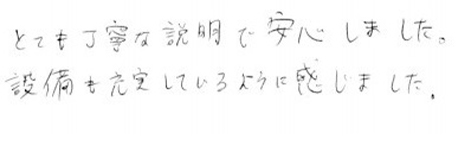 とても丁寧な説明で安心しました。
設備も充実しているように感じました。